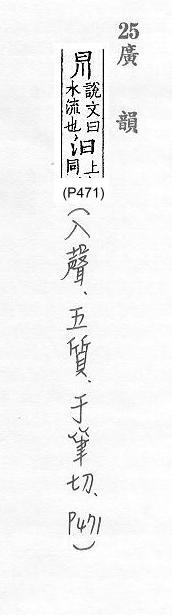 25
廣韻
說文曰
水流也
汩
上
同
(P471)
(入聲、五質、于筆切、P471)